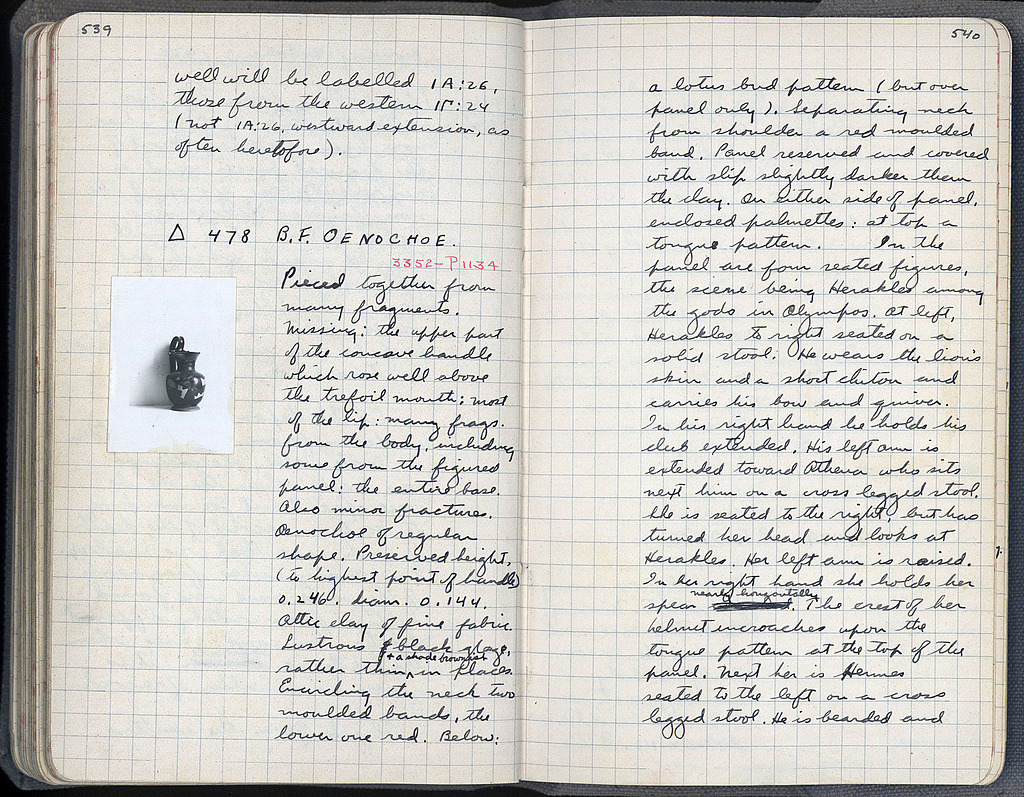 539
well will be labelled 1A:26,
those from the western 1Γ:24
(not 1A:26, westward extension, as
often heretofore).
Δ 478 B.F. OENOCHOE.
3352-P1134
Pieced together from
many fragments.
Missing: the upper part
of the concave handle
which rose well above
the trefoil mouth; most
of the lip: many frags.
from the body, including
some from the figured
panel: the entire base.
Also minor fractures.
Oenochoe of regular
shape. Preserved height,
(to highest point of handle)
0.246. diam. 0.144.
Attic clay of fine fabric.
Lustrous black glaze,
+ a shade brownish
rather thin, in places.
Encircling the neck two
moulded bands, the
lower one red. Below:
540
a lotus bud pattern (but over
panel only). Separating neck
from shoulder a red moulded
band. Panel reserved and covered
with slip slightly darker than
the clay. On either side of panel,
enclosed palmettes: at top a
tongue pattern. In the
panel are four seated figures,
the scene being Herakles among
the gods in Olympos. At left,
Herakles to right seated on a
solid stool. He wears the lion's
skin and a short chiton and
carries his bow and quiver.
In his right hand he holds his
club extended. His left arm is
extended toward Athena who sits
next him on a cross legged stool.
She is seated to the right, but has
turned her head and looks at
Herakles. Her left arm is raised.
In her right hand she holds her
nearly horizontally
spear . The crest of her
helmet encroaches upon the
tongue pattern at the top of the
panel. Next her is Hermes
seated to the left on a cross
legged stool. He is bearded and